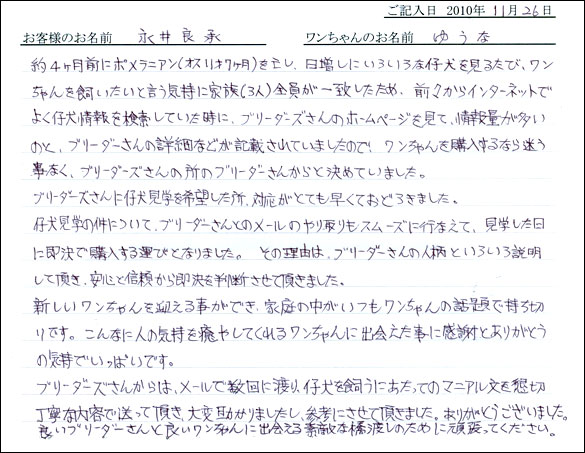 ご記入日 2010年 11月 26日
お客様のお名前 永井良承 ワンちゃんのお名前 ゆうな
約4ヶ月前にポメラニアン(オス11才7ヶ月)を亡し、日増しにいろいろな仔犬を見るたび、ワン
ちゃんを飼いたいと言う気持に家族(3人)全員が一致したため、前々からインターネットで
よく仔犬情報を検索していた時に、ブリーダーズさんのホームページを見て、情報量が多い
のと、ブリーダーさんの詳細などが記載されていましたので、ワンちゃんを購入するなら迷う
事なく、ブリーダーズさんの所のブリーダーさんからと決めていました。
ブリーダーズさんに仔犬見学を希望した所、対応がとても早くておどろきました。
仔犬見学の件について、ブリーダーさんとのメールのやり取りもスムーズに行なえて、見学した日
に即決で購入する運びとなりました。 その理由は、ブリーダーさんの人柄といろいろ説明
して頂き、安心と信頼から即決を判断させて頂きました。
新しいワンちゃんを迎える事ができ、家庭の中がいつもワンちゃんの話題で持ち切
りです。こんなに人の気持を癒やしてくれるワンちゃんに出会えた事に感謝とありがとう
の気持でいっぱいです。
ブリーダーズさんからは、メールで数回に渡り、仔犬を飼うにあたってのマニアル文を懇切
丁寧な内容で送って頂き、大変助かりましたし、参考にさせて頂きました。ありがとうございました。
良いブリーダーさんと良いワンちゃんに出会える素敵な橋渡しのために頑張ってください。